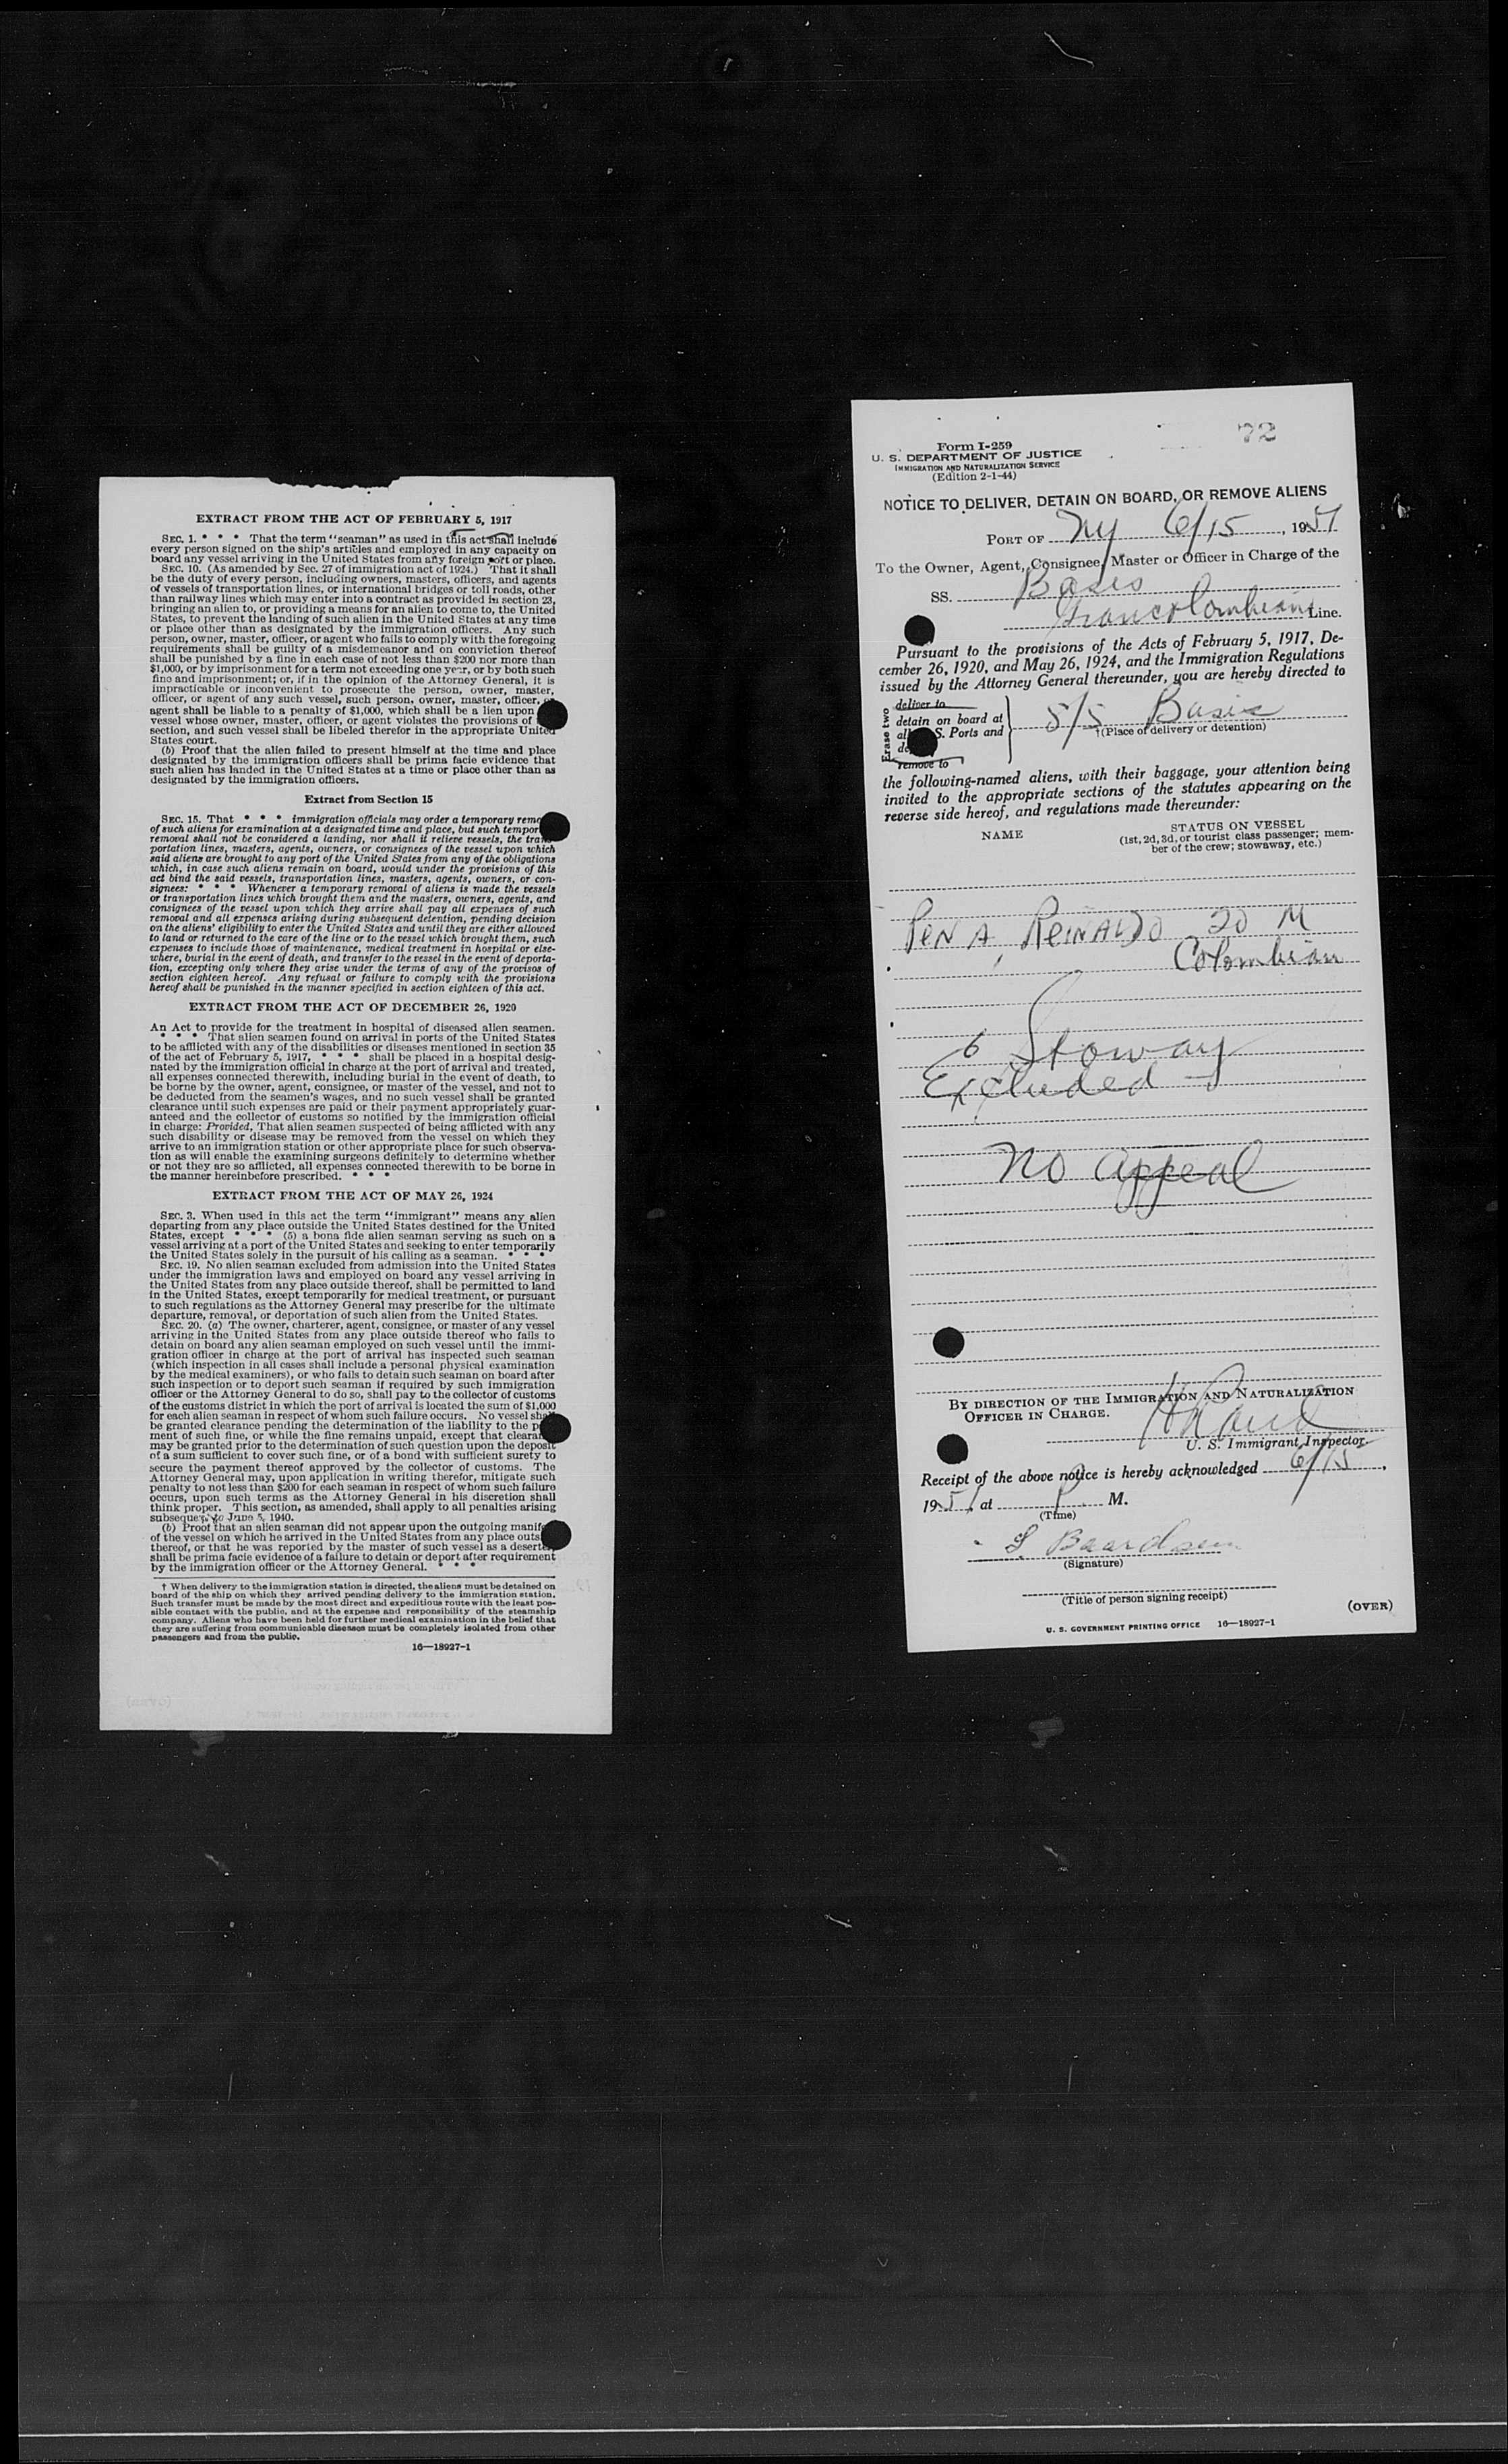 EXTRACT FROM THE ACT OF FEBRUARY 5, 1917
SEC. 1. * * * That the term "seaman" as used in this act shall include
every person signed on the ship's articles and employed in any capacity on
board any vessel arriving in the United States from any foreign port or place.
SEC. 10. (As amended by Sec. 27 of immigration act of 1924.) That it shall
be the duty of every person, including owners, masters, officers, and agents
of vessels of transportation lines, or international bridges or toll roads, other
than railway lines which may enter into a contract as provided in section 23,
bringing an alien to, or providing a means for an alien to come to, the United
States, to prevent the landing of such alien in the United States at any time
or place other than as designated by the immigration officers. Any such
person, owner, master, officer, or agent who fails to comply with the foregoing
requirements shall be guilty of a misdemeanor and on conviction thereof
shall be punished by a fine in each case of not less than $200 nor more than
$1,000, or by imprisonment for a term not exceeding one year, or by both such
fine and imprisonment; or, if in the opinion of the Attorney General, it is
impracticable or inconvenient to prosecute the person, owner, master,
officer, or agent of any such vessel, such person, owner, master, officer,
agent shall be liable to a penalty of $1,000, which shall be a lien upon
vessel whose owner, master, officer, or agent violates the provisions of
section, and such vessel shall be libeled therefor in the appropriate United
States court.
(b) Proof that the alien failed to present himself at the time and place
designated by the immigration officers shall be prima facie evidence that
such alien has landed in the United States at a time or place other than as
designated by the immigration officers.
Extract from Section 15
SEC. 15. That * * * immigration officials may order a temporary remo
of such aliens for examination at a designated time and place, but such tempor
removal shall not be considered a landing, nor shall it relieve vessels, the trans-
portation lines, masters, agents, owners, or consignees of the vessel upon which
said aliens are brought to any port of the United States from any of the obligations
which, in case such aliens remain on board, would under the provisions of this
act bind the said vessels, transportation lines, masters, agents, owners, or con-
signees: * * * Whenever a temporary removal of aliens is made the vessels
or transportation lines which brought them and the masters, owners, agents, and
consignees of the vessel upon which they arrive shall pay all expenses of such
removal and all expenses arising during subsequent detention, pending decision
on the aliens' eligibility to enter the United States and until they are either allowed
to land or returned to the care of the line or to the vessel which brought them, such
expenses to include those of maintenance, medical treatment in hospital or else-
where, burial in the event of death, and transfer to the vessel in the event of deporta-
tion, excepting only where they arise under the terms of any of the provisos of
section eighteen hereof. Any refusal or failure to comply with the provisions
hereof shall be punished in the manner specified in section eighteen of this act.
EXTRACT FROM THE ACT OF DECEMBER 26, 1920
An Act to provide for the treatment in hospital of diseased alien seamen.
* * * That alien seamen found on arrival in ports of the United States
to be afflicted with any of the disabilities or diseases mentioned in section 35
of the act of February 5, 1917, * * * shall be placed in a hospital desig-
nated by the immigration official in charge at the port of arrival and treated,
all expenses connected therewith, including burial in the event of death, to
be borne by the owner, agent, consignee, or master of the vessel, and not to
be deducted from the seamen's wages, and no such vessel shall be granted
clearance until such expenses are paid or their payment appropriately guar-
anteed and the collector of customs so notified by the immigration official
in charge: Provided, That alien seamen suspected of being afflicted with any
such disability or disease may be removed from the vessel on which they
arrive to an immigration station or other appropriate place for such observa-
tion as will enable the examining surgeons definitely to determine whether
or not they are so afflicted, all expenses connected therewith to be borne in
the manner hereinbefore prescribed. * * *
EXTRACT FROM THE ACT OF MAY 26, 1924
SEC. 3. When used in this act the term "immigrant" means any alien
departing from any place outside the United States destined for the United
States, except * * * (5) a bona fide alien seaman serving as such on a
vessel arriving at a port of the United States and seeking to enter temporarily
the United States solely in the pursuit of his calling as a seaman. * * *
SEC. 19. No alien seaman excluded from admission into the United States
under the immigration laws and employed on board any vessel arriving in
the United States from any place outside thereof, shall be permitted to land
in the United States, except temporarily for medical treatment, or pursuant
to such regulations as the Attorney General may prescribe for the ultimate
departure, removal, or deportation of such alien from the United States.
SEC. 20. (a) The owner, charterer, agent, consignee, or master of any vessel
arriving in the United States from any place outside thereof who fails to
detain on board any alien seaman employed on such vessel until the immi-
gration officer in charge at the port of arrival has inspected such seaman
(which inspection in all cases shall include a personal physical examination
by the medical examiners), or who fails to detain such seaman on board after
such inspection or to deport such seaman if required by such immigration
officer or the Attorney General to do so, shall pay to the collector of customs
of the customs district in which the port of arrival is located the sum of $1,000
for each alien seaman in respect of whom such failure occurs. No vessel shall
be granted clearance pending the determination of the liability to the p
ment of such fine, or while the fine remains unpaid, except that clearan
may be granted prior to the determination of such question upon the deposit
of a sum sufficient to cover such fine, or of a bond with sufficient surety to
secure the payment thereof approved by the collector of customs. The
Attorney General may, upon application in writing therefor, mitigate such
penalty to not less than $200 for each seaman in respect of whom such failure
occurs, upon such terms as the Attorney General in his discretion shall
think proper. This section, as amended, shall apply to all penalties arising
subsequent to June 5, 1940.
(b) Proof that an alien seaman did not appear upon the outgoing manife
of the vessel on which he arrived in the United States from any place outs
thereof, or that he was reported by the master of such vessel as a deserter
shall be prima facie evidence of a failure to detain or deport after requirement
by the immigration officer or the Attorney General. * * *
† When delivery to the immigration station is directed, the aliens must be detained on
board of the ship on which they arrived pending delivery to the immigration station.
Such transfer must be made by the most direct and expeditious route with the least pos-
sible contact with the public, and at the expense and responsibility of the steamship
company. Aliens who have been held for further medical examination in the belief that
they are suffering from communicable diseases must be completely isolated from other
passengers and from the public.
16—18927-1
72
Form I-259
U. S. DEPARTMENT OF JUSTICE
IMMIGRATION AND NATURALIZATION SERVICE
(Edition 2-1-44)
NOTICE TO DELIVER, DETAIN ON BOARD, OR REMOVE ALIENS
PORT OF NY 6/15, 1951
To the Owner, Agent, Consignee, Master or Officer in Charge of the
SS. Basis
Grancolombiana Line.
Pursuant to the provisions of the Acts of February 5, 1917, De-
cember 26, 1920, and May 26, 1924, and the Immigration Regulations
issued by the Attorney General thereunder, you are hereby directed to
Erase two
deliver to
detain on board at
all S. Ports and
de
remove to
S/S Basis
†(Place of delivery or detention)
the following-named aliens, with their baggage, your attention being
invited to the appropriate sections of the statutes appearing on the
reverse side hereof, and regulations made thereunder:
NAME
STATUS ON VESSEL
(1st, 2d, 3d, or tourist class passenger; mem-
ber of the crew; stowaway, etc.)
PENA, REINALDO 20 M
Colombian
6 Stoway
Excluded
No Appeal
BY DIRECTION OF THE IMMIGRATION AND NATURALIZATION
OFFICER IN CHARGE.
U. S. Immigrant Inspector.
Receipt of the above notice is hereby acknowledged 6/15,
1951, at P. M.
(Time)
Baardsen
(Signature)
(Title of person signing receipt)
(OVER)
U. S. GOVERNMENT PRINTING OFFICE 16—18927-1